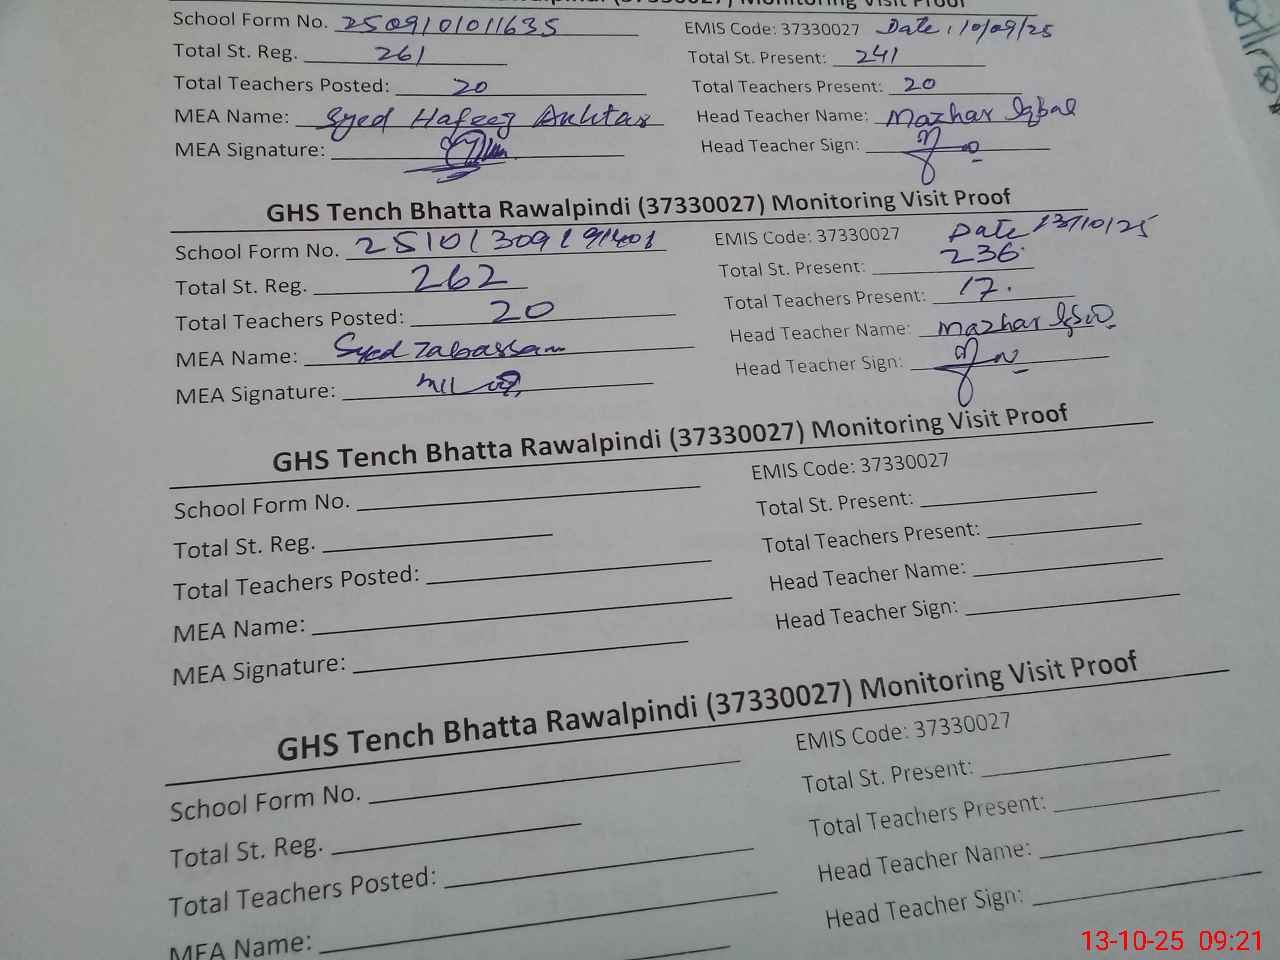 Rawalpindi (37330027) Monitoring Visit Proof
School Form No. 2509101011635 EMIS Code: 37330027 Date: 10/09/25
Total St. Reg. 261 Total St. Present: 241
Total Teachers Posted: 20 Total Teachers Present: 20
MEA Name: Syed Hafeez Akhtar Head Teacher Name: Mazhar Iqbal
MEA Signature: Head Teacher Sign:
GHS Tench Bhatta Rawalpindi (37330027) Monitoring Visit Proof
School Form No. EMIS Code: 37330027 Date 13/10/25
Total St. Reg. 262 Total St. Present: 236
Total Teachers Posted: 20 Total Teachers Present: 17.
MEA Name: Syed Tabassam Head Teacher Name: Mazhar Iqbal
MEA Signature: Head Teacher Sign:
GHS Tench Bhatta Rawalpindi (37330027) Monitoring Visit Proof
School Form No. EMIS Code: 37330027
Total St. Reg. Total St. Present:
Total Teachers Posted: Total Teachers Present:
MEA Name: Head Teacher Name:
MEA Signature: Head Teacher Sign:
GHS Tench Bhatta Rawalpindi (37330027) Monitoring Visit Proof
School Form No. EMIS Code: 37330027
Total St. Reg. Total St. Present:
Total Teachers Posted: Total Teachers Present:
MEA Name: Head Teacher Name:
Head Teacher Sign:
13-10-25 09:21